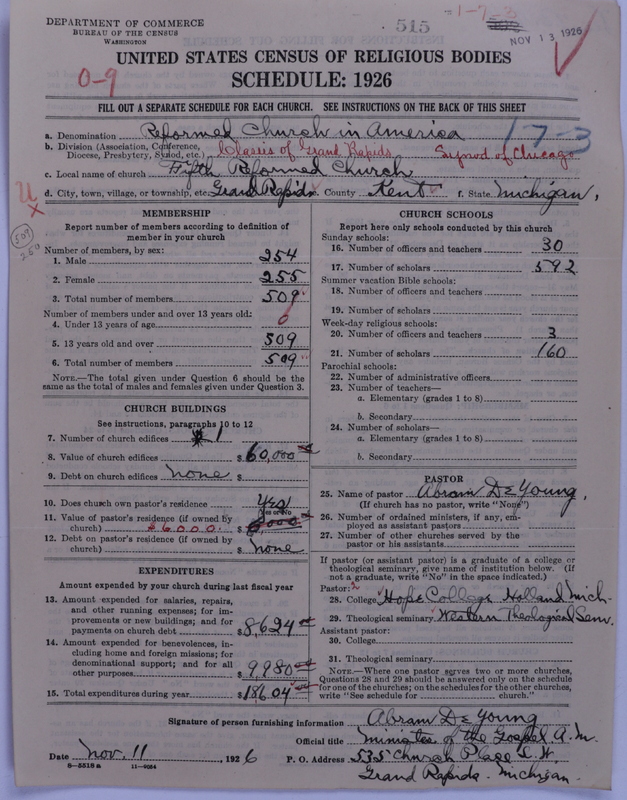 DEPARTMENT OF COMMERCE
BUREAU OF THE CENSUS
WASHINGTON
515
1-7-3
NOV 13 1926
UNITED STATES CENSUS OF RELIGIOUS BODIES
SCHEDULE: 1926
0-9
FILL OUT A SEPARATE SCHEDULE FOR EACH CHURCH. SEE INSTRUCTIONS ON THE BACK OF THIS SHEET
a. Denomination Reformed Church in America 17-3
b. Division (Association, Conference, Diocese, Presbytery, Synod, etc.) Classis of Grand Rapids Synod of Chicago
c. Local name of church Fifth Reformed Church
d. City, town, village, or township, etc. Grand Rapids e. County Kent f. State Michigan.
509
250
MEMBERSHIP
Report number of members according to definition of
member in your church
Number of members, by sex:
1. Male 254
2. Female 255
3. Total number of members 509
Number of members under and over 13 years old:
4. Under 13 years of age 0
5. 13 years old and over 509
6. Total number of members 509
NOTE.—The total given under Question 6 should be
same as the total of males and females given under Question 3.
CHURCH BUILDINGS
See instructions, paragraphs 10 to 12
7. Number of church edifices 1
8. Value of church edifices $ 60,000
9. Debt on church edifices none $
10. Does church own pastor's residence Yes
Yes or No
11. Value of pastor's residence (if owned by
church) $6000. $ 6000
12. Debt on pastor's residence (if owned by
church) $ none
EXPENDITURES
Amount expended by your church during last fiscal year
13. Amount expended for salaries, repairs,
and other running expenses; for im-
provements or new buildings; and for
payments on church debt $ 8,624
14. Amount expended for benevolences, in-
cluding home and foreign missions; for
denominational support; and for all
other purposes $ 9980
15. Total expenditures during year $ 18604
CHURCH SCHOOLS
Report here only schools conducted by this church
Sunday schools:
16. Number of officers and teachers 30
17. Number of scholars 592
Summer vacation Bible schools:
18. Number of officers and teachers
19. Number of scholars
Week-day religious schools:
20. Number of officers and teachers 3
21. Number of scholars 160
Parochial schools:
22. Number of administrative officers
23. Number of teachers—
a. Elementary (grades 1 to 8)
b. Secondary
24. Number of scholars—
a. Elementary (grades 1 to 8)
b. Secondary
PASTOR
25. Name of pastor Abram De Young,
(If church has no pastor, write "None")
26. Number of ordained ministers, if any, em-
ployed as assistant pastors
27. Number of other churches served by the
pastor or his assistants
If pastor (or assistant pastor) is a graduate of a college or
theological seminary, give name of institution below. (If
not a graduate, write "No" in the space indicated.)
Pastor: 2
28. College Hope College Holland Mich.
29. Theological seminary Western Theological Sem.
Assistant pastor:
30. College
31. Theological seminary
NOTE.—Where one pastor serves two or more churches,
Questions 28 and 29 should be answered only on the schedule
for one of the churches; on the schedules for the other churches,
write "See schedule for church."
Signature of person furnishing information Abram De Young
Official title Minister of the Gospel A.M.
Date Nov. 11, 1926 P. O. Address 535 Church Place S.W.
Grand Rapids. Michigan.
8—5518 a 11—9084